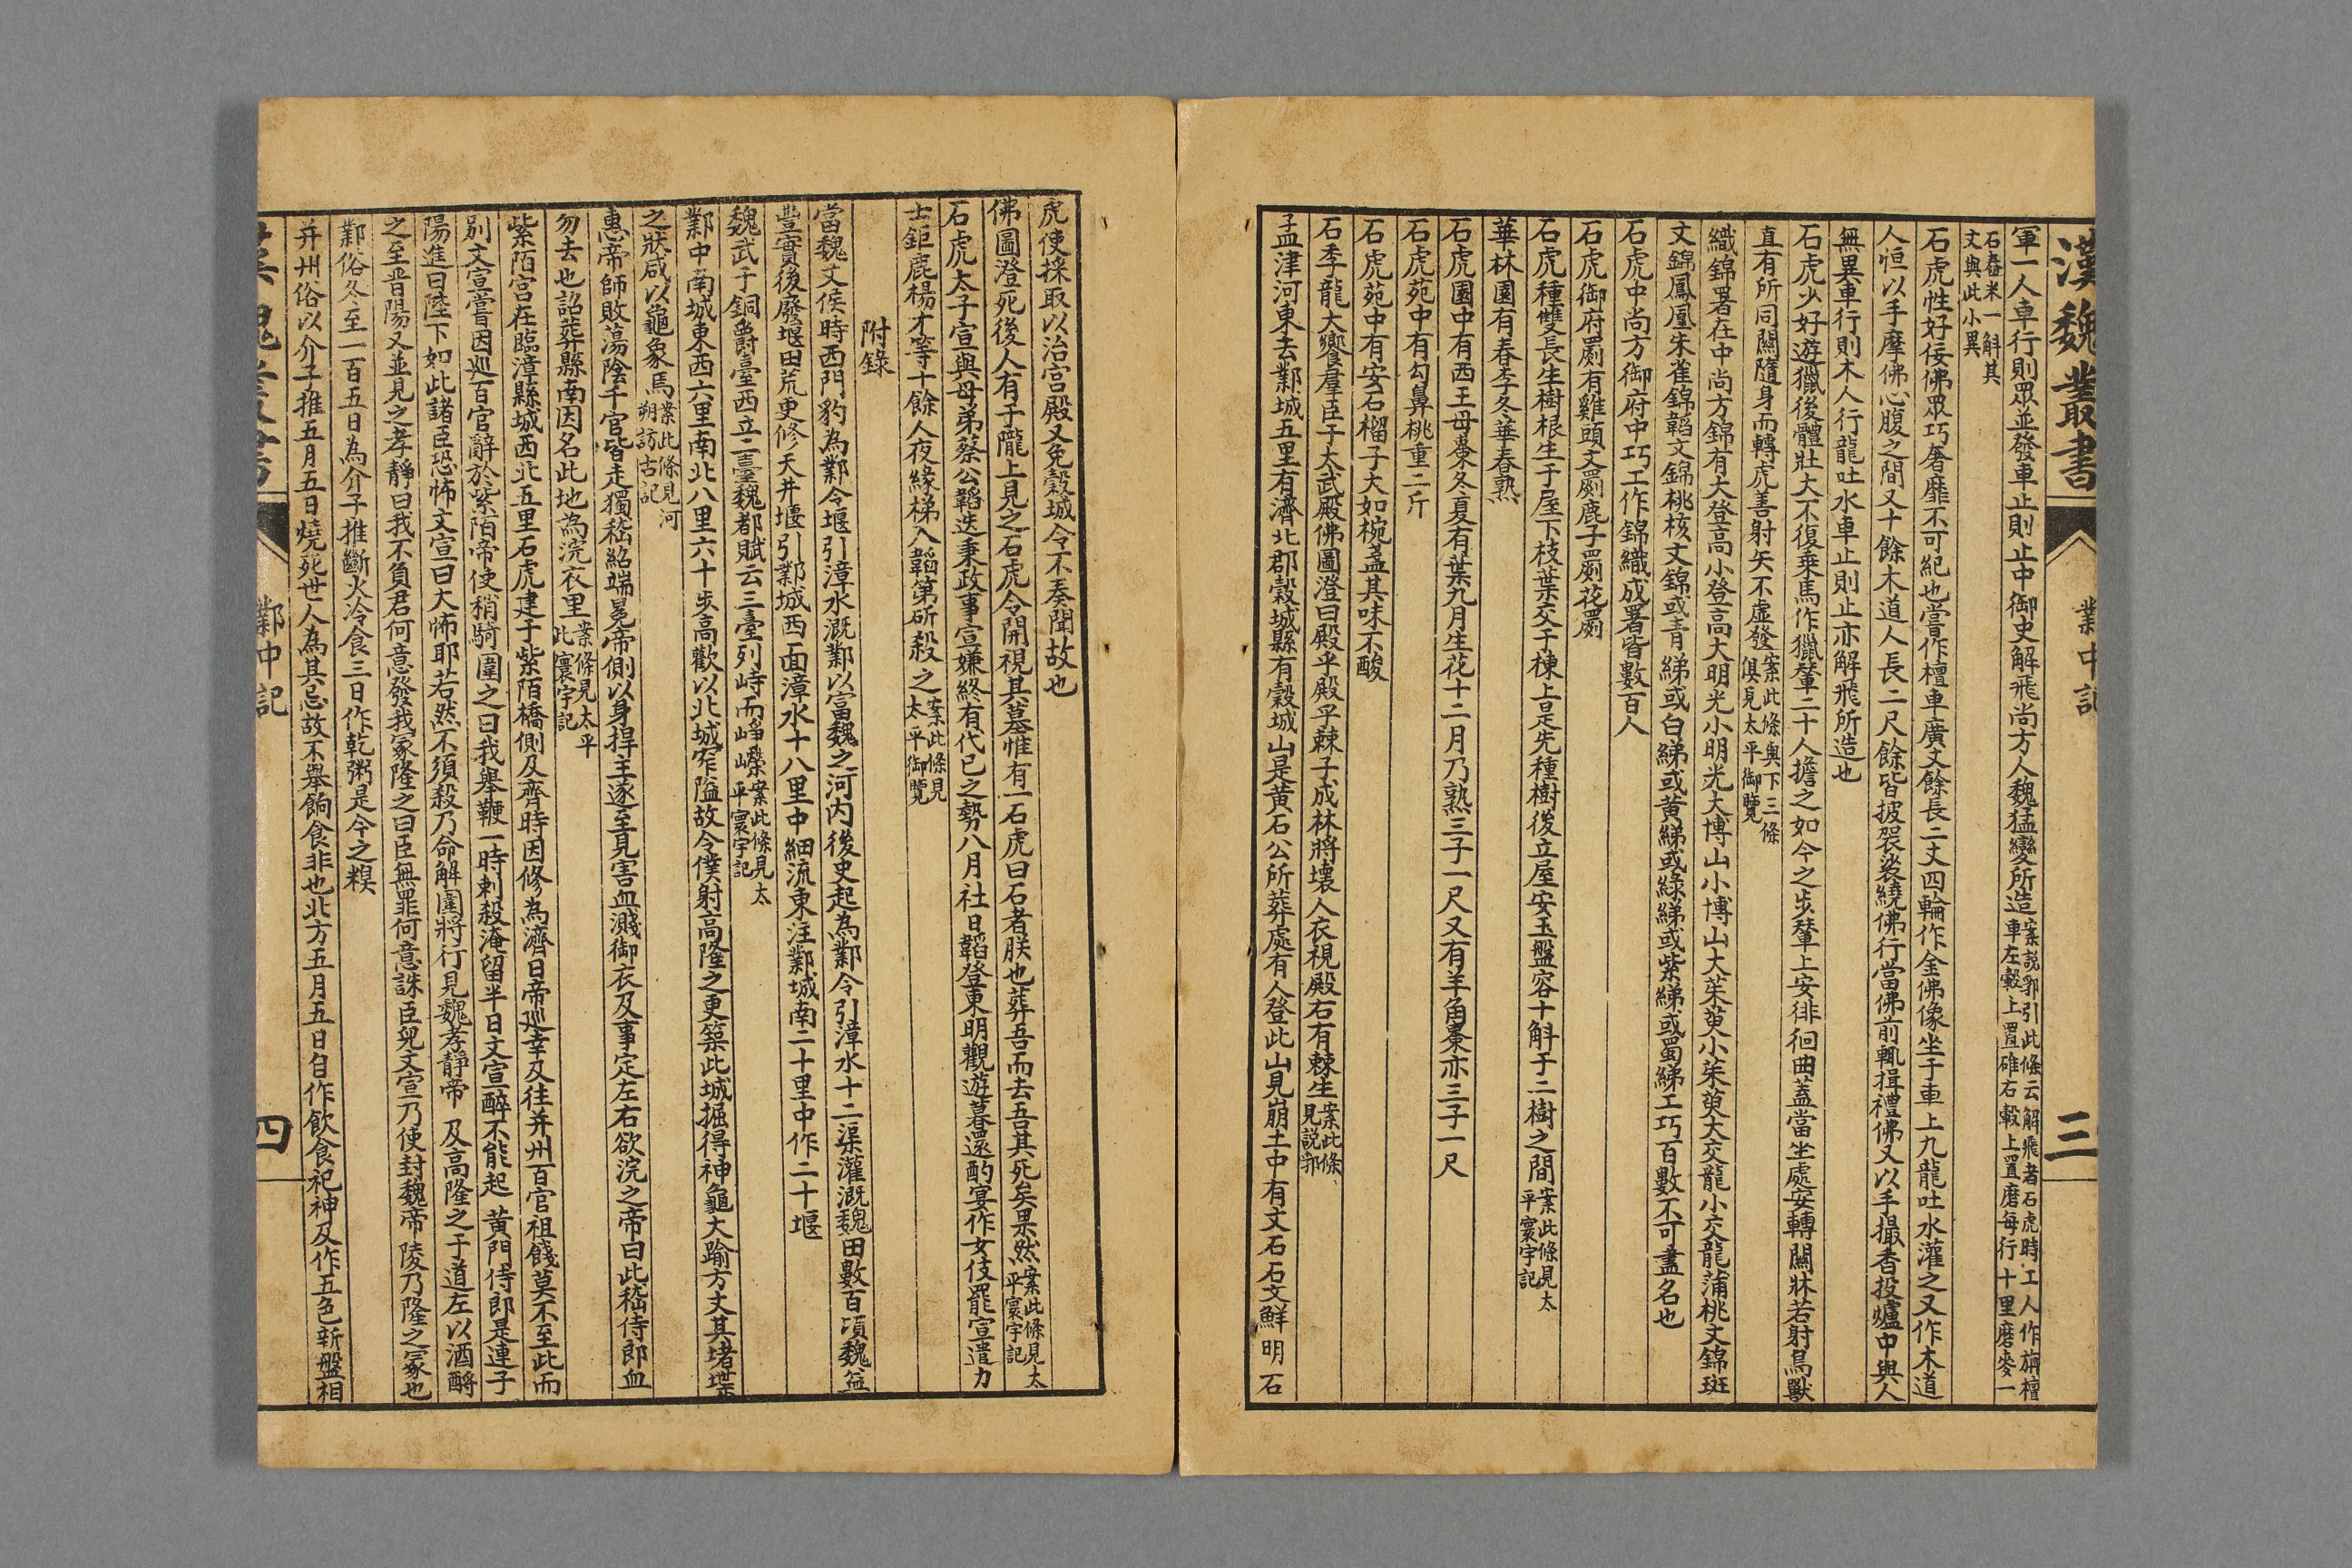 漢魏叢書　鄴中記　三
軍一人車行則眾並發車止則止中御史解飛尚方人魏猛變所造案説郛引此條云解飛者石虎時工人作旃檀車左轂上置碓右轂上置磨每行十里磨麥一
石舂米一斛其文與此小異
石虎性好佞佛眾巧奢靡不可紀也嘗作檀車廣丈餘長二丈四輪作金佛像坐于車上九龍吐水灌之又作木道
人恒以手摩佛心腹之間又十餘木道人長二尺餘皆披袈裟繞佛行當佛前輒揖禮佛又以手撮香投爐中與人
無異車行則木人行龍吐水車止則止亦解飛所造也
石虎少好遊獵後體壯大不復乘馬作獵輦二十人擔之如今之步輦上安徘徊曲蓋當坐處安轉關牀若射鳥獸
直有所同關隨身而轉虎善射矢不虛發案此條與下三條俱見太平御覽
織錦署在中尚方錦有大登高小登高大明光小明光大博山小博山大茱萸小茱萸大交龍小交龍蒲桃文錦斑
文錦鳳凰朱雀錦韜文錦桃核文錦或青綈或白綈或黃綈或綠綈或紫綈或蜀綈工巧百數不可盡名也
石虎中尚方御府中巧工作錦織成署皆數百人
石虎御府罽有雞頭文罽鹿子罽花罽
石虎種雙長生樹根生于屋下枝葉交于棟上是先種樹後立屋安玉盤容十斛于二樹之間案此條見太平寰宇記
華林園有春李冬華春熟
石虎園中有西王母棗冬夏有葉九月生花十二月乃熟三子一尺又有羊角棗亦三子一尺
石虎苑中有勾鼻桃重二斤
石虎苑中有安石榴子大如椀盞其味不酸
石季龍大饗羣臣于太武殿佛圖澄曰殿乎殿乎棘子成林將壞人衣視殿石有棘生案此條見説郛
孟津河東去鄴城五里有濟北郡穀城縣有穀城山是黃石公所葬處有人登此山見崩土中有文石石文鮮明石
虎使採取以治宮殿又免穀城令不奏聞故也
佛圖澄死後人有于隴上見之石虎令開視其墓惟有一石虎曰石者朕也葬吾而去吾其死矣果然案此條見太平寰宇記
石虎太子宣與母弟蔡公韜迭秉政事宣嫌終有代已之勢八月社日韜登東明觀遊暮還酌宴作女伎罷宣遣力
士鉅鹿楊才等十餘人夜緣梯入韜第斫殺之案此條見太平御覽
附錄
當魏文侯時西門豹為鄴令堰引漳水溉鄴以富魏之河內後史起為鄴令引漳水十二渠灌溉魏田數百頃魏益
豐實後廢堰田荒更修天井堰引鄴城西面漳水十八里中細流東注鄴城南二十里中作二十堰
魏武于銅爵臺西立二臺魏都賦云三臺列峙而崢嶸案此條見太平寰宇記
鄴中南城東西六里南北八里六十步高歡以北城窄隘故令僕射高隆之更築此城掘得神龜大踰方丈其堵堞
之狀咸以龜象焉案此條見河朔訪古記
惠帝師敗蕩陰千官皆走獨嵇紹端冕帝側以身捍主遂至見害血濺御衣及事定左右欲浣之帝曰此嵇侍郎血
勿去也詔葬縣南因名此地為浣衣里案條見太平此寰宇記
紫陌宮在臨漳縣城西北五里石虎建于紫陌橋側及齊時因修為濟日帝巡幸及往并州百官祖餞莫不至此而
別文宣嘗因巡百官辭於紫陌帝使稍騎圍之曰我舉鞭一時刺殺淹留半日文宣醉不能起黃門侍郎是連子
陽進曰陛下如此諸臣恐怖文宣曰大怖耶若然不須殺乃命解圍將行見魏孝靜帝及高隆之于道左以酒酹
之至晋陽又並見之孝靜曰我不負君何意發我冢隆之曰臣無罪何意誅臣兒文宣乃使封魏帝陵乃隆之冢也
鄴俗冬至一百五日為介子推斷火冷食三日作乾粥是今之糗
并州俗以介子推五月五日燒死世人為其忌故不舉餉食非也北方五月五日自作飲食祀神及作五色新盤相
漢魏叢書　鄴中記　四